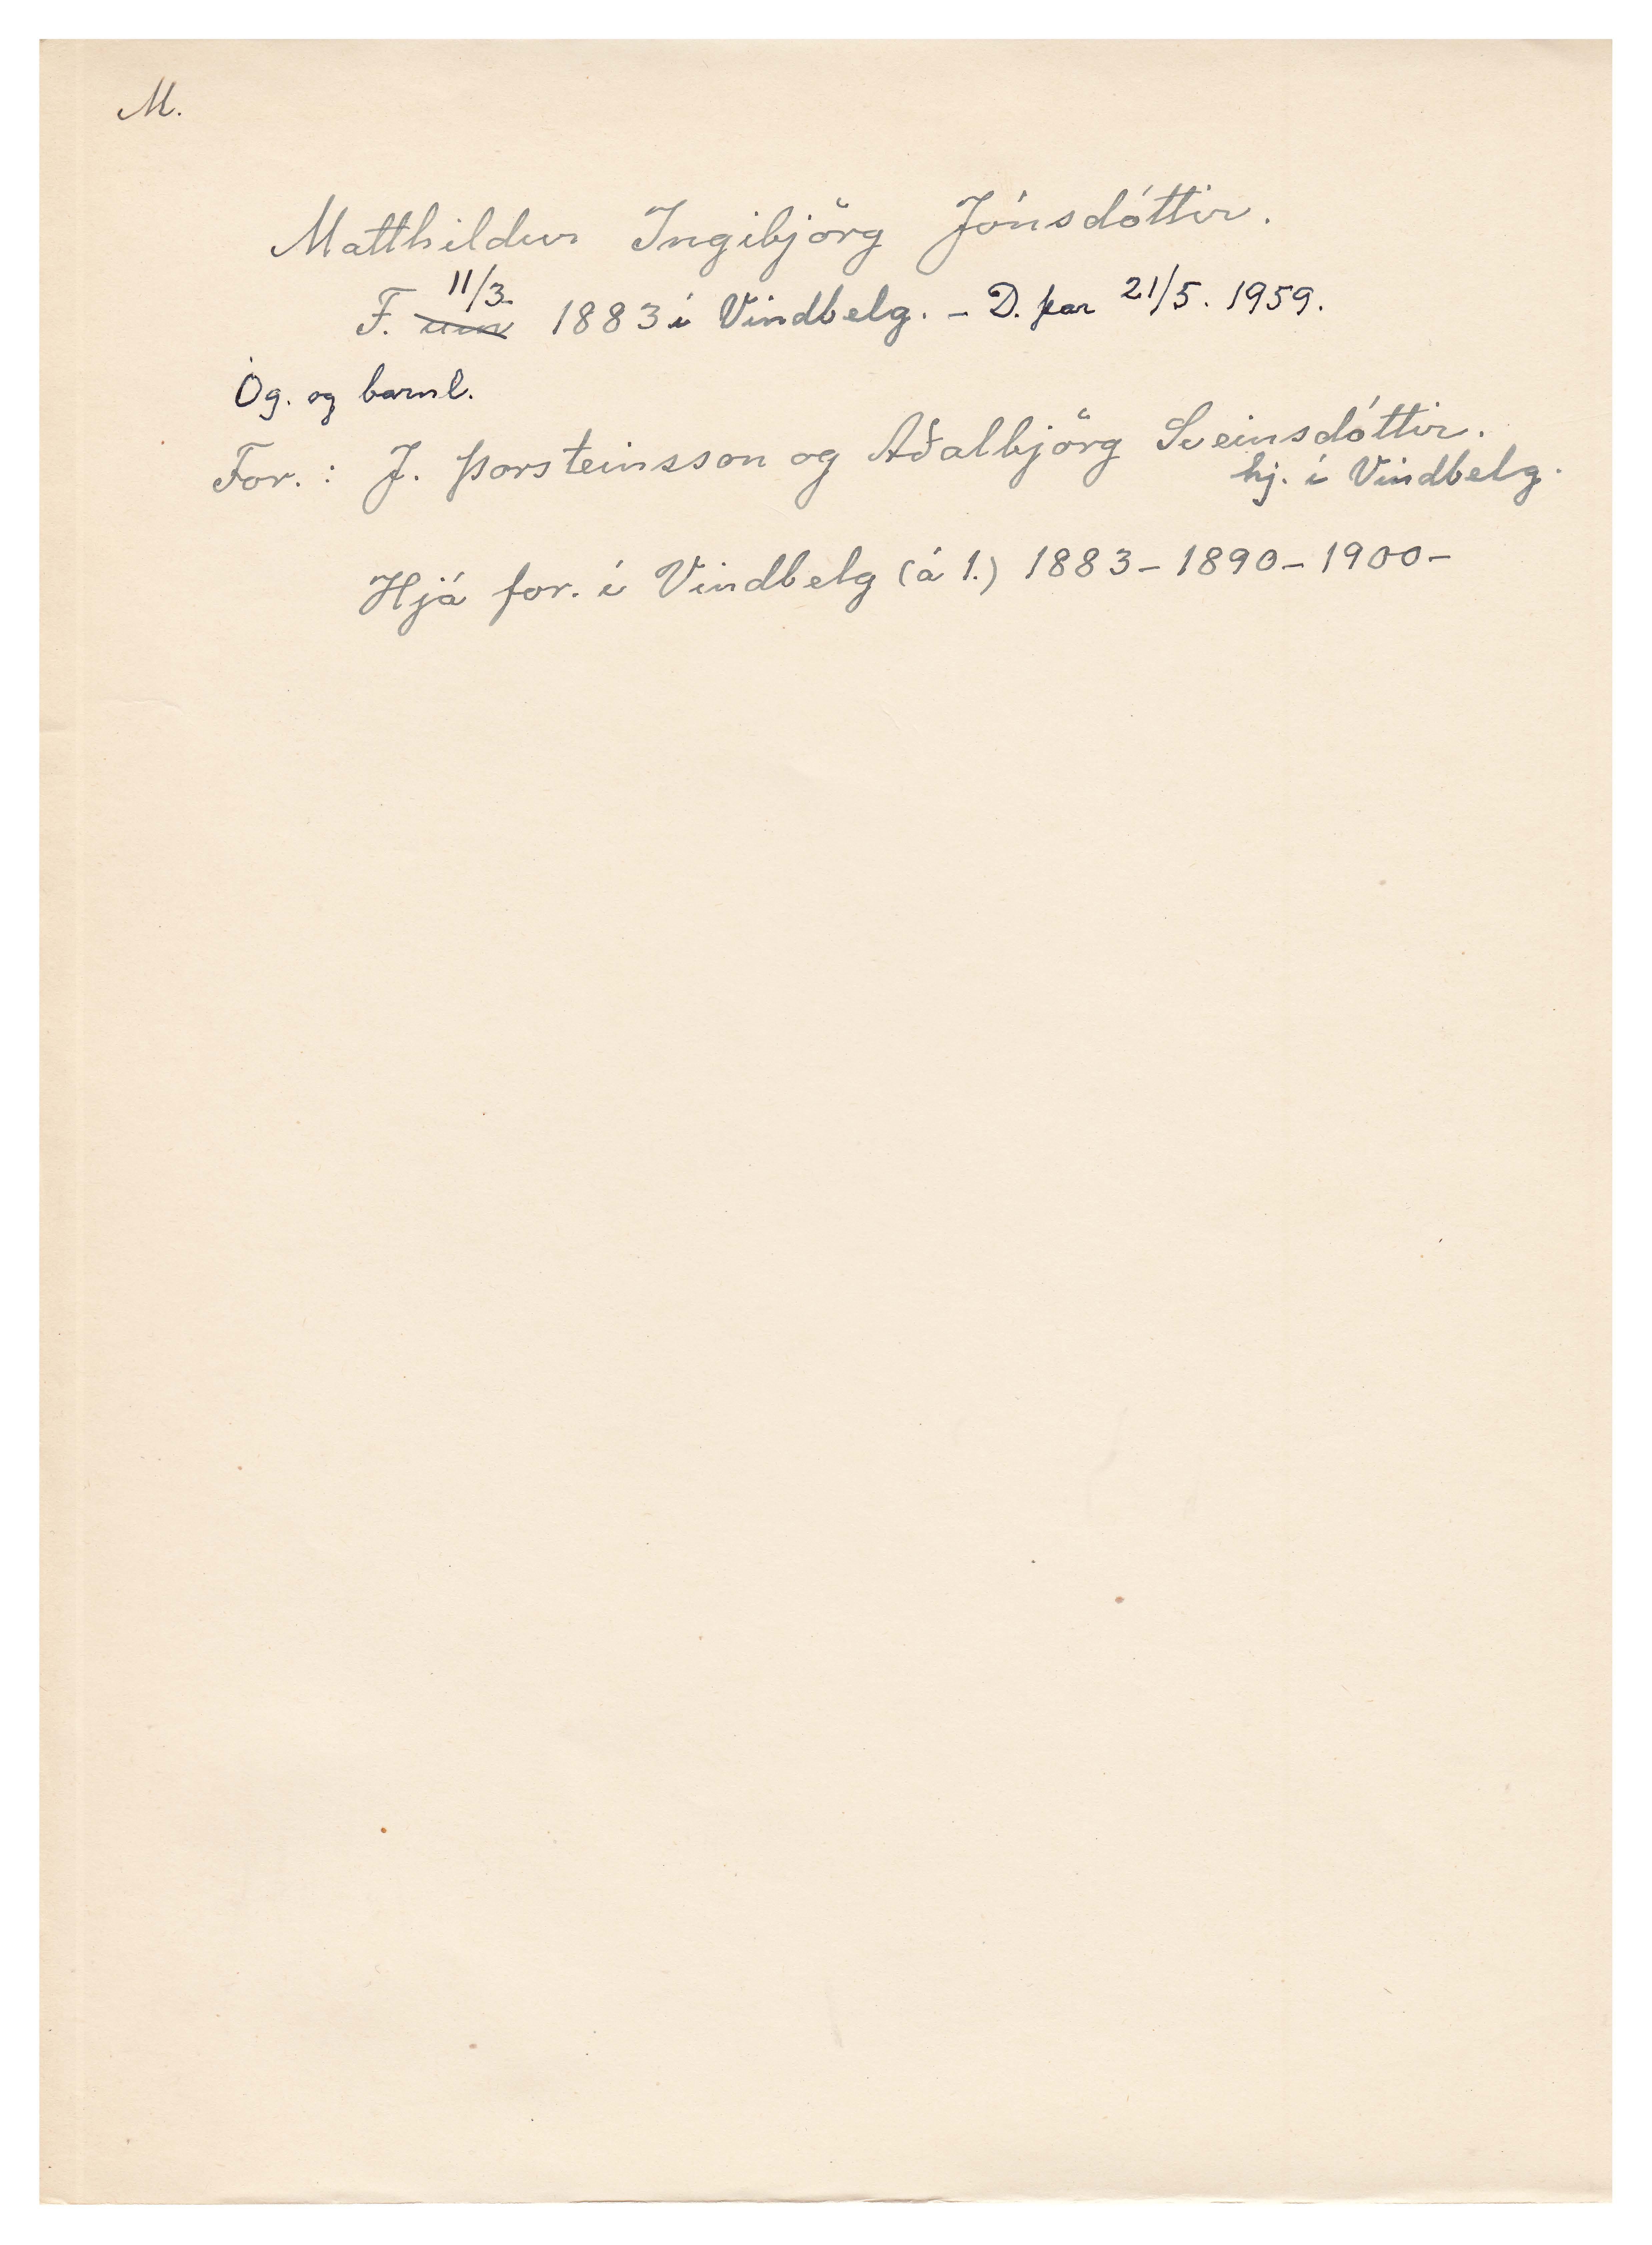 M.
Matthildur Ingibjörg Jónsdóttir.
F. um 11/3. 1883 í Vindbelg. - D. þar 21/5. 1959.
Óg. og barnl.
For. : J. Þorsteinsson og Aðalbjörg Sveinsdóttir.
hj. í Vindbelg.
Hjá for. í Vindbelg (á 1.) 1883 - 1890 - 1900 -